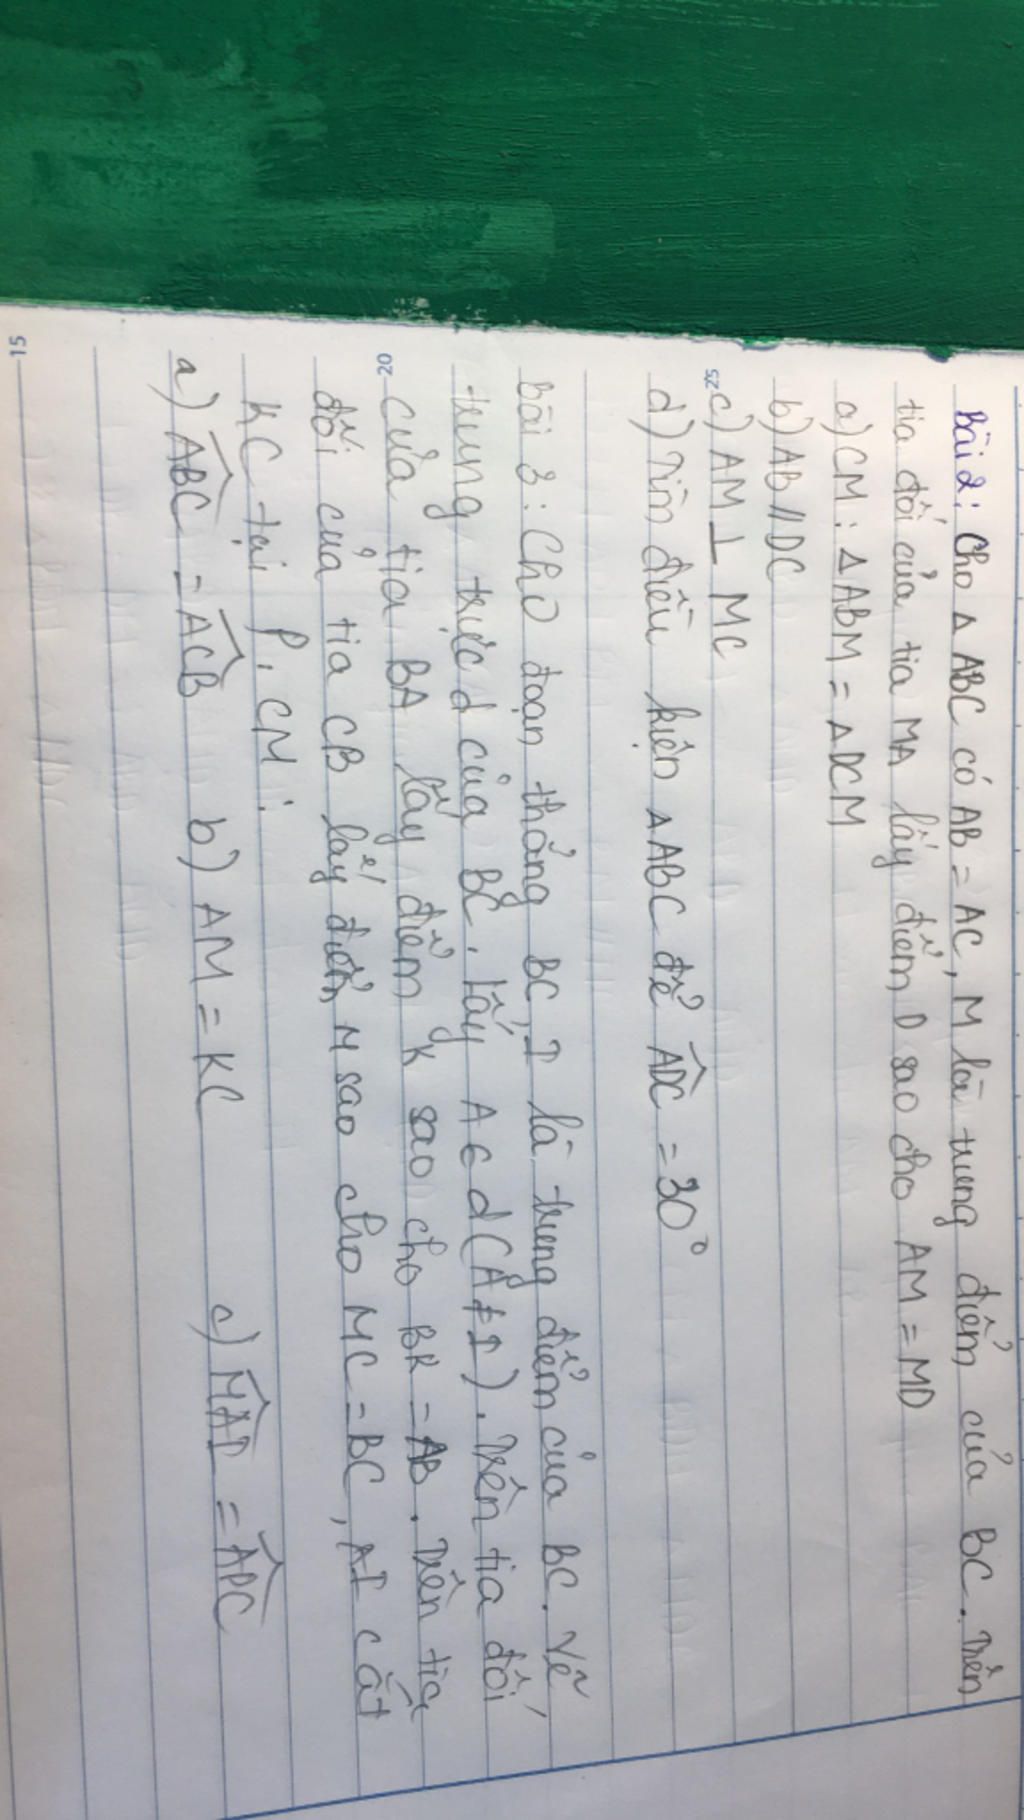 Bài 2: Cho Δ ABC có AB = AC, M là trung điểm của BC. Trên
tia đối của tia MA lấy điểm D sao cho AM = MD
a) CM: Δ ABM = Δ DCM
b) AB // DC
c) AM ⊥ MC
d) Tìm điều kiện Δ ABC để \widehat{ADC} = 30°
Bài 3: Cho đoạn thẳng BC, I là trung điểm của BC. Vẽ
trung trực d của BC. Lấy A ∈ d (A ≠ I). Trên tia đối
của tia BA lấy điểm K sao cho BK = AB. Trên tia
đối của tia CB lấy điểm M sao cho MC = BC, AI cắt
KC tại P, CM:
a) \widehat{ABC} = \widehat{ACB} b) AM = KC c) \widehat{MAI} = \widehat{APC}
25
20
15